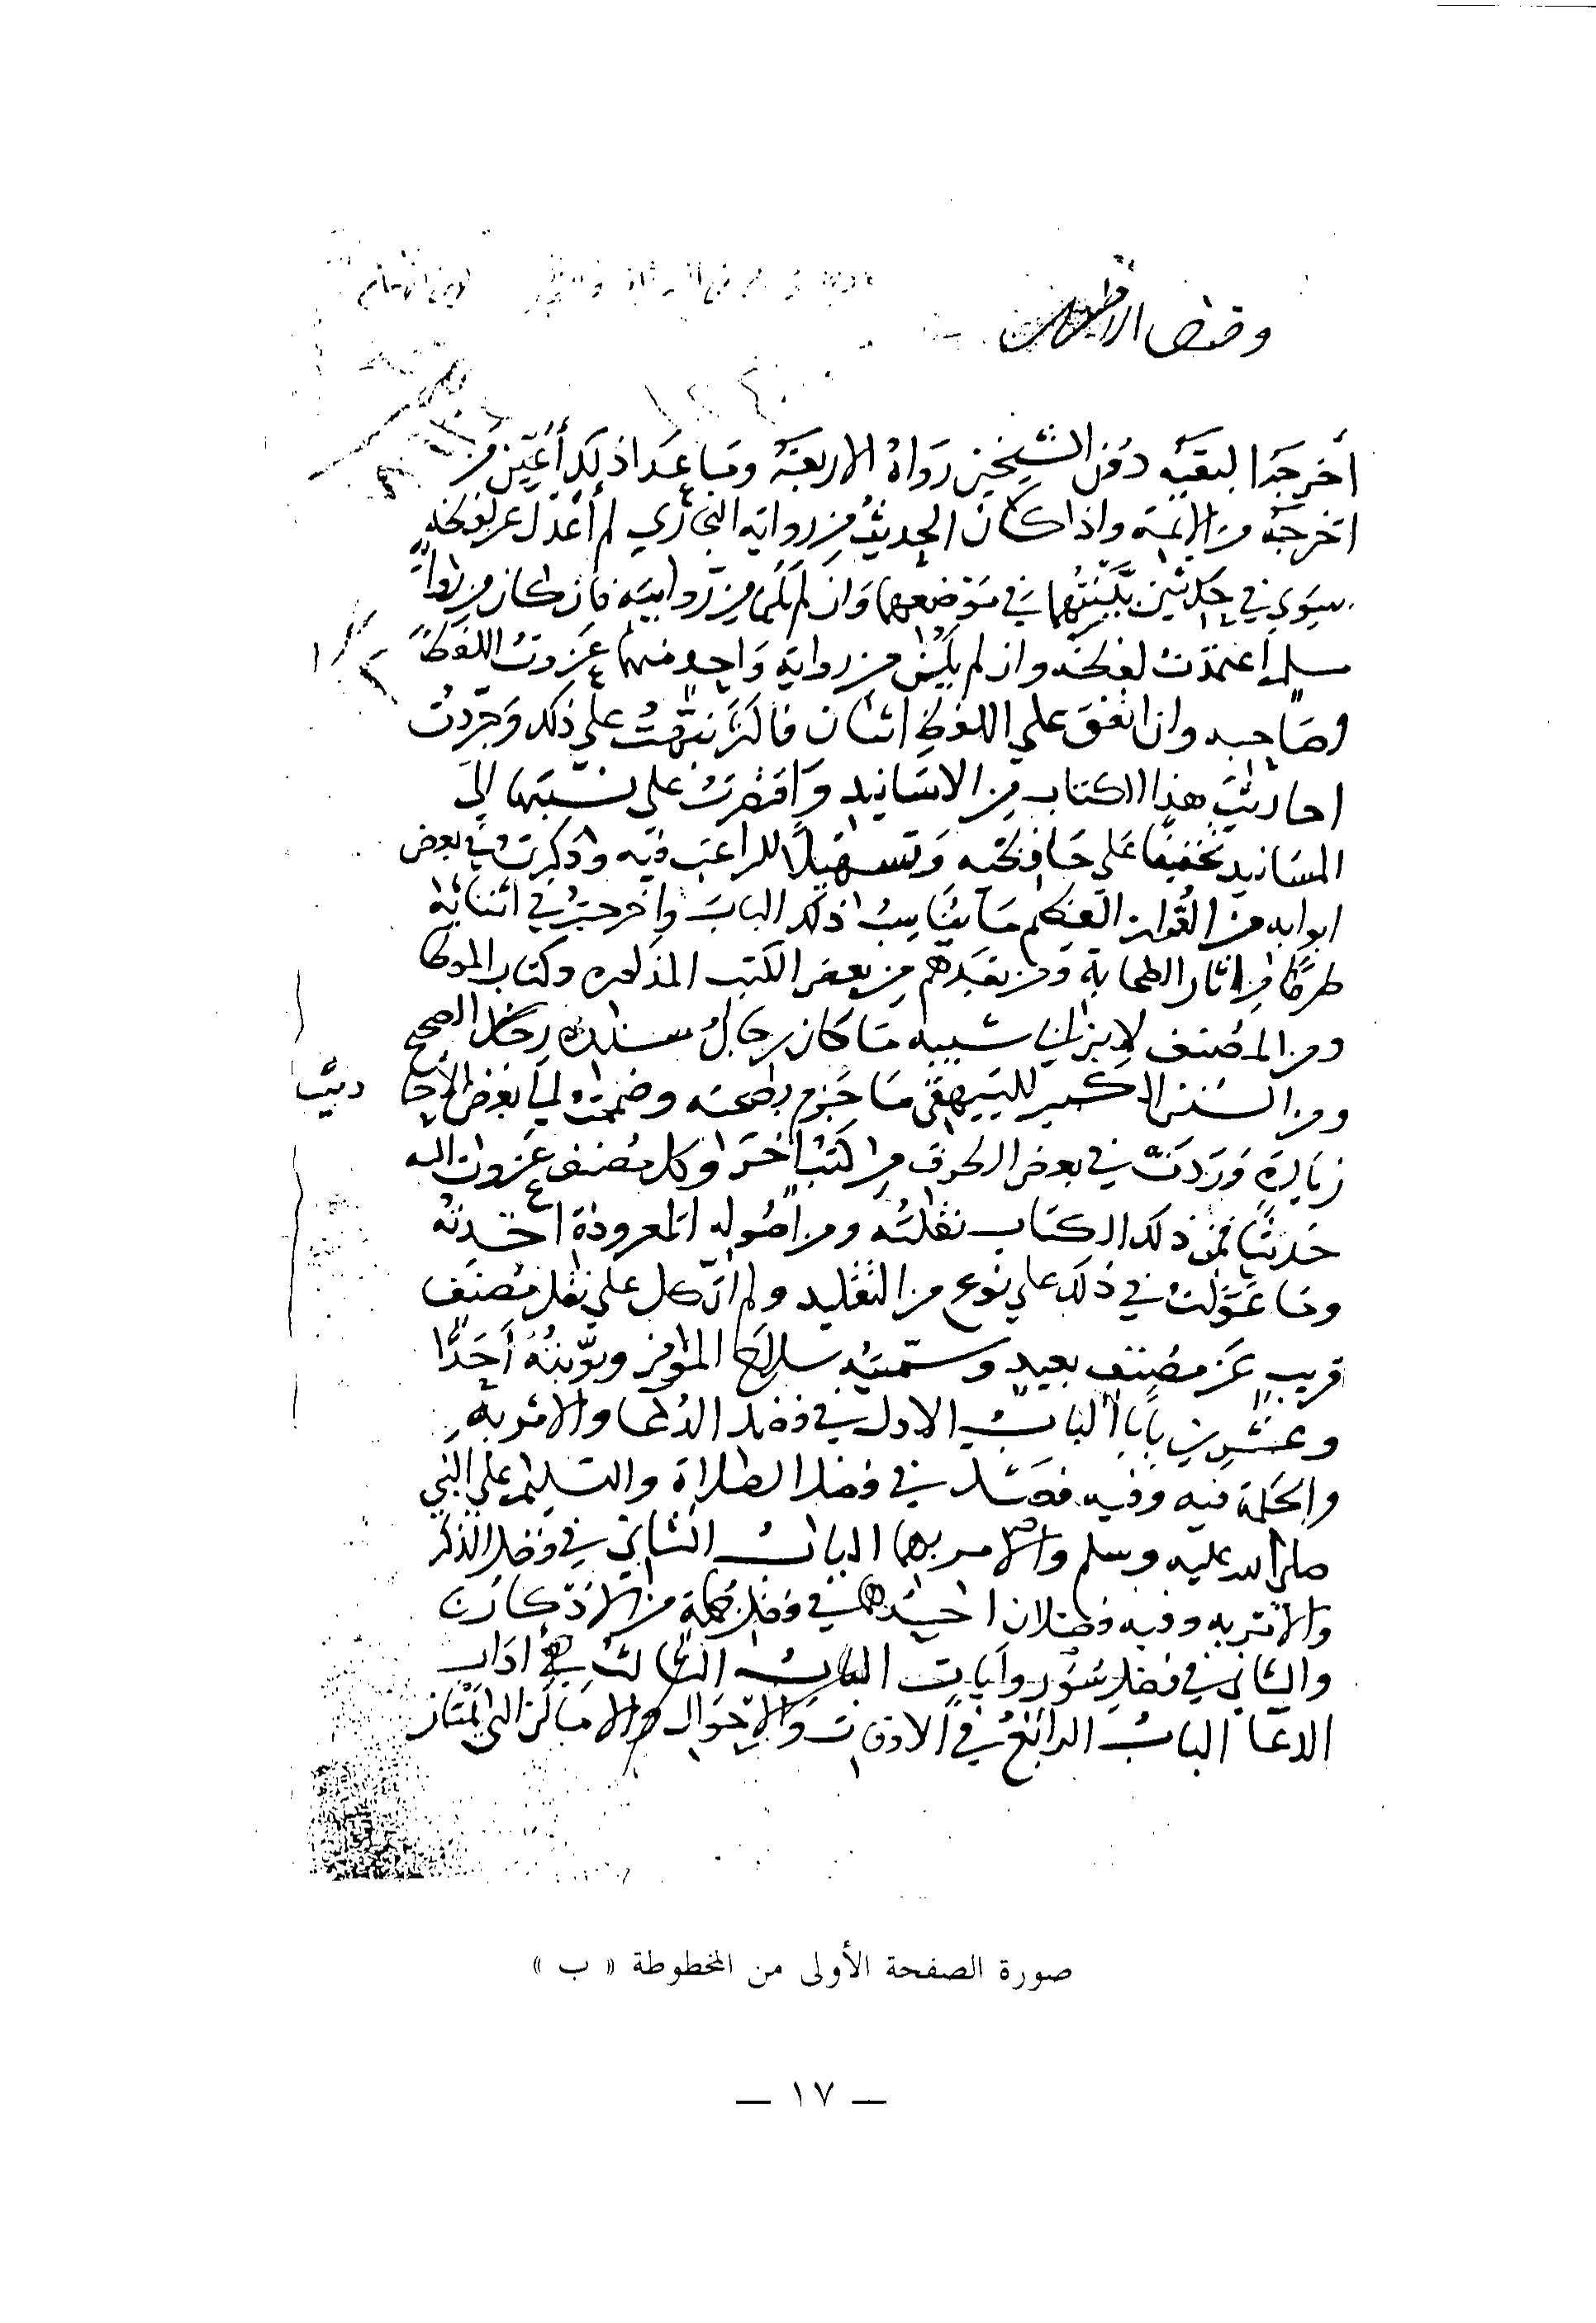 أخرجه البقية دون الشيخين رواه الأربعة وما عدا ذلك أعين من
اخرجه من الايمة واذا كان الحديث من رواية البخاري لم أعدل عن لفظه
سوى في حديثين بينتهما في موضعهما وان لم يكن من روايته فان كان من رواية
مسلم اعتمدت لفظه وان لم يكن من رواية واحد منهما عزوت اللفظ
لصاحبه وان اتفق على اللفظ اثنان فاكثر نبهت على ذلك وجردت
احاديث هذا الكتاب من الاسانيد واقتصرت على نسبتها الى
المسانيد تخفيفا على حافظه وتسهيلا للراغب فيه وذكرت في بعض
ابوابه من القران العظيم ما يناسب ذلك الباب واخرجت في اثنائه
طرفا من اثار الصحابة ومن بعدهم من بعض الكتب المذكوره وكتاب الموطا
ومن المصنف لابن ابي شيبه ما كان رجال سنده رجال الصحيح
ومن السنن الكبير للبيهقي ما جزم بصحته وضممت الى بعض الأحا ديث
زيادة وردت في بعض الطرق من كتب اخر وكل مصنف عزوت اليه
حديثا فمن ذلك الكتاب نقلته ومن أصوله المعروفة اخذته
وما عولت في ذلك على نوع من التقليد ولم اتكل على نقل مصنف
قريب عن مصنف بعيد وسميته سلاح المؤمن وبوبته أحدا
وعشرين بابا الباب الاول في فضل الدعا والامر به
والحكمة فيه وفيه فصل في فضل الصلاة والتسليم على النبي
صلى الله عليه وسلم والامر بها الباب الثاني في فضل الذكر
والامر به وفيه فصلان احدهما في فضل جملة من الاذكار
والثاني في فضل سور وآيات الباب الثالث في اداب
الدعا الباب الرابع في الاوقات والاحوال والاماكن التي
صورة الصفحة الأولى من المخطوطة « ب »
— ١٧ —